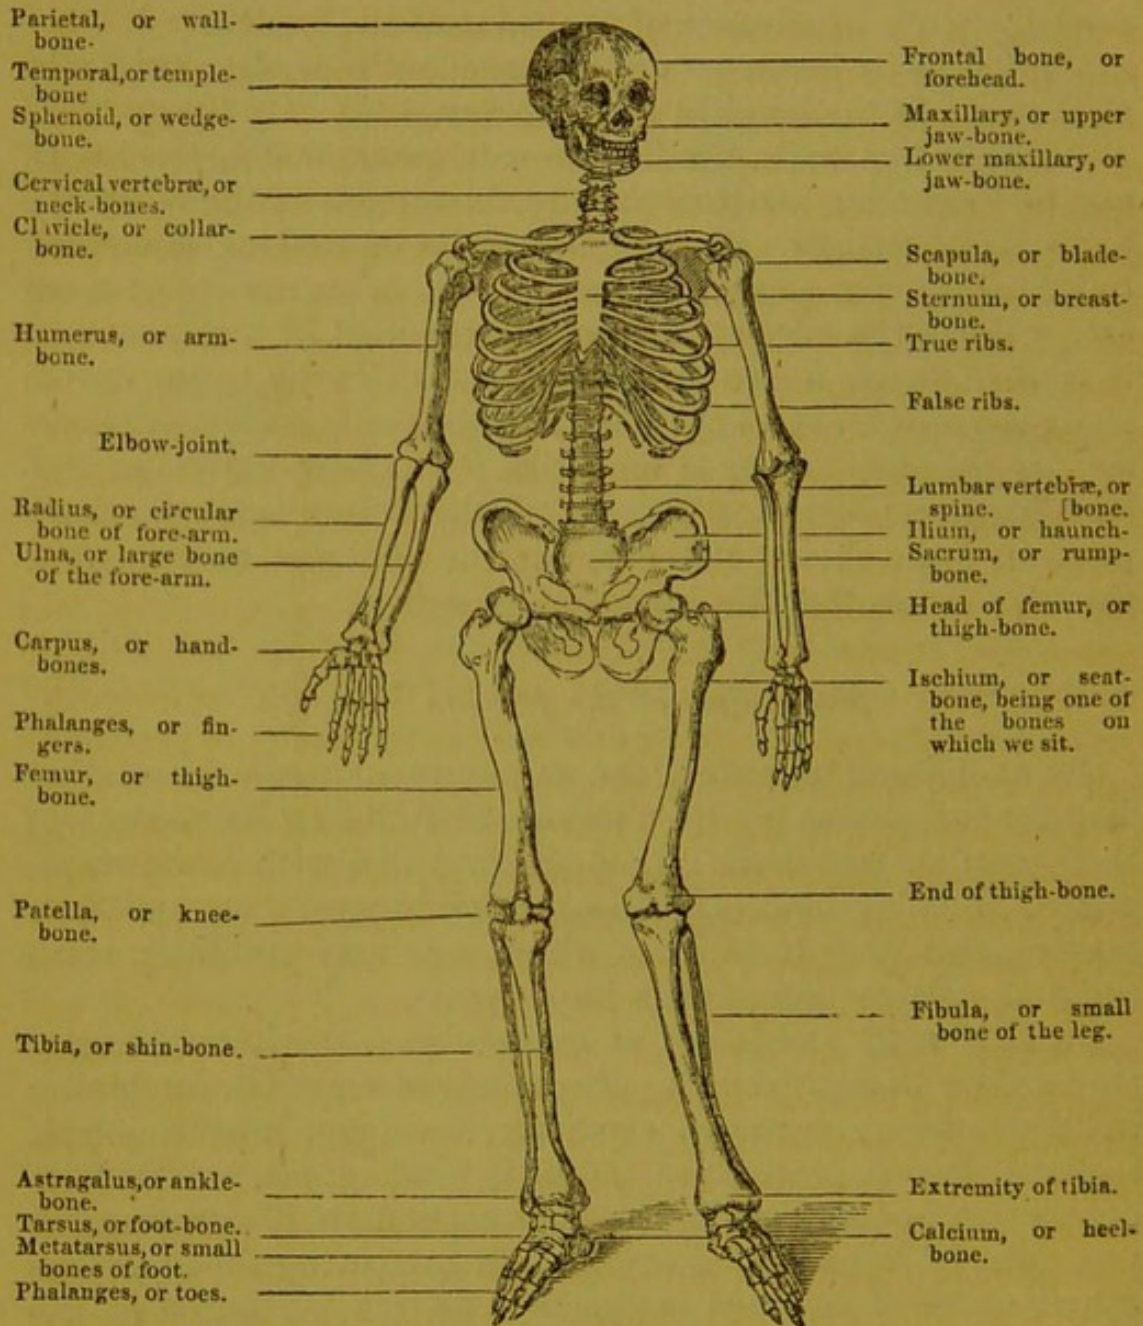 Parietal, or wall-
bone-
Temporal, or temple-
bone
Sphenoid, or wedge-
bone.
Cervical vertebræ, or
neck-bones.
Clavicle, or collar-
bone.
Humerus, or arm-
bone.
Elbow-joint.
Radius, or circular
bone of fore-arm.
Ulna, or large bone
of the fore-arm.
Carpus, or hand-
bones.
Phalanges, or fin-
gers.
Femur, or thigh-
bone.
Patella, or knee-
bone.
Tibia, or shin-bone.
Astragalus, or ankle-
bone.
Tarsus, or foot-bone.
Metatarsus, or small
bones of foot.
Phalanges, or toes.
Frontal bone, or
forehead.
Maxillary, or upper
jaw-bone.
Lower maxillary, or
jaw-bone.
Scapula, or blade-
bone.
Sternum, or breast-
bone.
True ribs.
False ribs.
Lumbar vertebræ, or
spine. [bone.
Ilium, or haunch-
Sacrum, or rump-
bone.
Head of femur, or
thigh-bone.
Ischium, or seat-
bone, being one of
the bones on
which we sit.
End of thigh-bone.
Fibula, or small
bone of the leg.
Extremity of tibia.
Calcium, or heel-
bone.